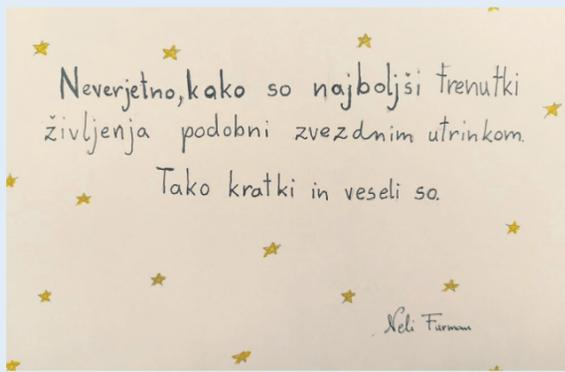 Neverjetno, kako so najboljši trenutki
življenja podobni zvezdnim utrinkom.
Tako kratki in veseli so.
Neli Furman